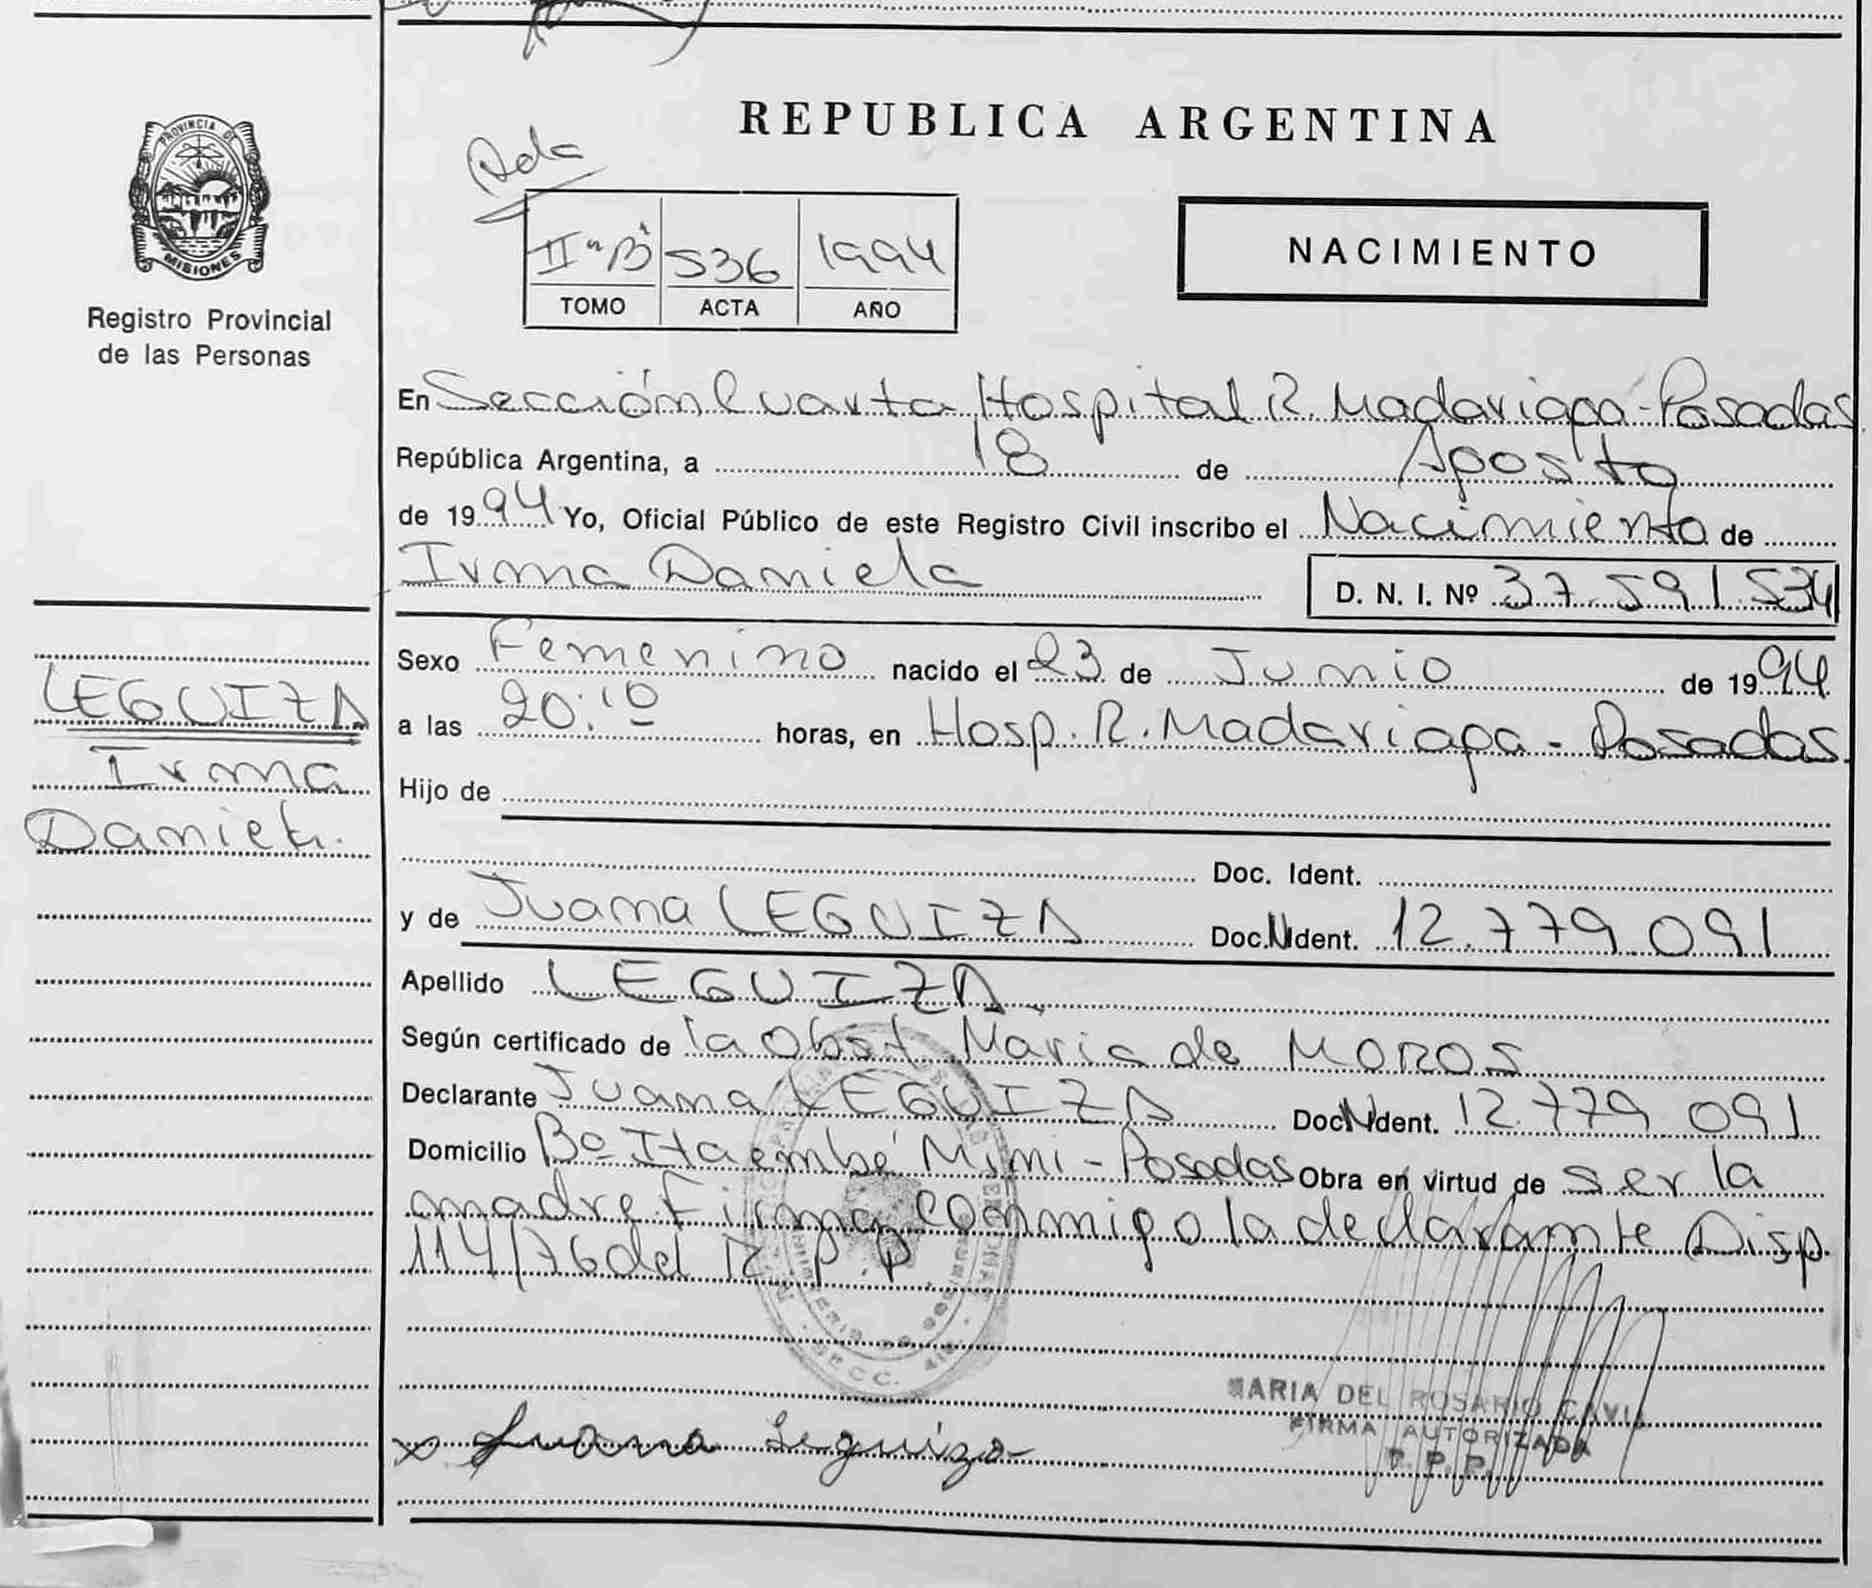 REPUBLICA ARGENTINA
PROVINCIA DE
MISIONES
Registro Provincial
de las Personas
II "B" 536 1994
TOMO ACTA AÑO
NACIMIENTO
En Sección Cuarta Hospital R. Madariaga - Posadas
República Argentina, a 18 de Agosto
de 1994 Yo, Oficial Público de este Registro Civil inscribo el Nacimiento de
Irma Daniela D. N. I. Nº 37.591.534
LEGUIZA
Irma
Daniela.
Sexo Femenino nacido el 23 de Junio de 1994
a las 20:10 horas, en Hosp. R. Madariaga - Posadas.
Hijo de
Doc. Ident.
y de Juana LEGUIZA Doc. Ident. 12.779.091
Apellido LEGUIZA.
Según certificado de la Obst Maria de MOROS
Declarante Juana LEGUIZA Doc Ident. 12.779 091
Domicilio Bº Itaembé Mini - Posadas Obra en virtud de ser la
madre. Firma conmigo la declarante Disp.
114/76 del R. P. P.
MARIA DEL ROSARIO
FIRMA AUTORIZADA
x Juana Leguiza